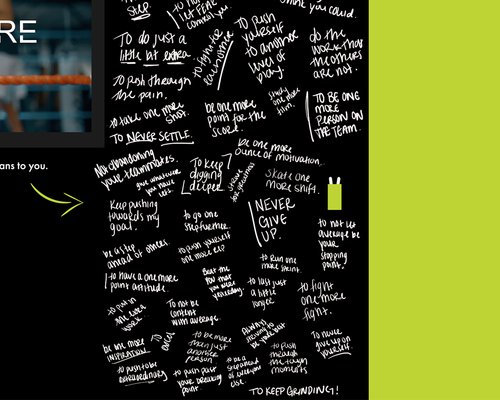 RE
ans to you.
STEP
LET FEAR
control you.
think you could.
To do just a
little bit extra.
to fight for
each other
To push
yourself
to another
level of
play.
do the
work that
the others
are not.
To push through
the pain.
to take one more
shot.
TO NEVER SETTLE.
be one more
point for the
score.
skate one more
TO BE ONE
MORE
PERSON ON
THE TEAM.
Not abandoning
your teammates.
give whatever
you have
left.
To keep
digging
deeper
be one more
ounce of motivation.
strive for greatness
skate one
more shift.
Keep pushing
towards my
goal.
to go one
step further.
NEVER
GIVE
UP.
to not let
average be
your
stopping
point.
be a step
ahead of others
to push yourself
one more rep
to have a one more
point attitude.
Beat the
you that
you were
yesterday.
to run one
more sprint.
to last just
a little
longer.
to fight
one more
fight.
to put in
the extra
work.
To not be
content
with average.
be one more
INSPIRATION
to be more
than just
another
person
Always
striving to
be the best
to push
through
the tough
moments
To never
give up on
yourself
to push to be
extraordinary
to push past
your breaking
point
to be a
step ahead
of everyone
else.
TO KEEP GRINDING!